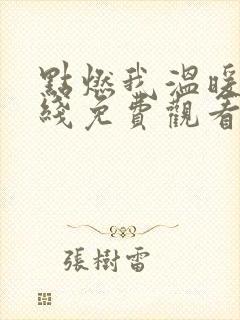 點燃我溫暖
綫免費觀看
張樹雷